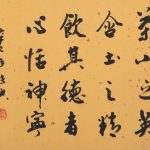 山之英
含土之精
飲其德者
心恬神寧